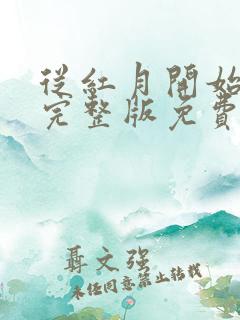 從紅月開始
完整版免費
聶文强
未经同意禁止转载